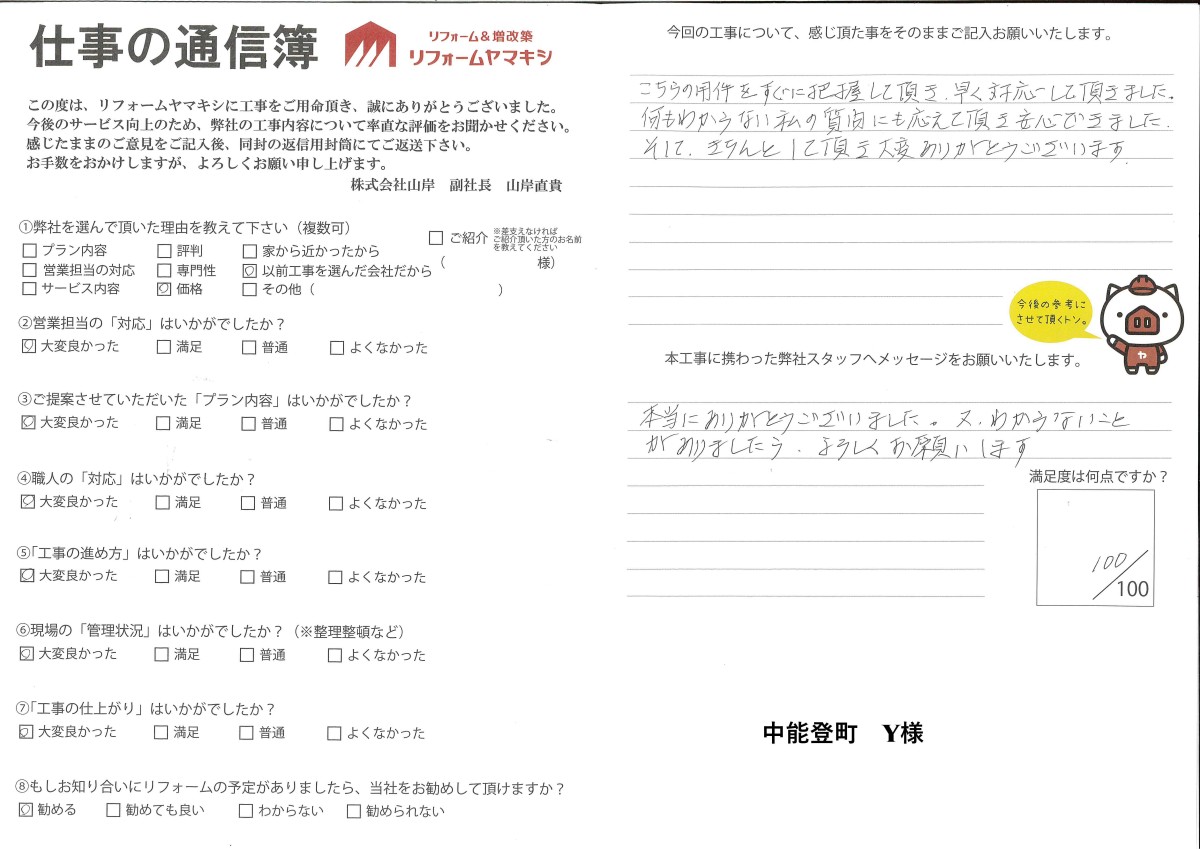 仕事の通信簿
リフォーム&増改築
リフォームヤマキシ
この度は、リフォームヤマキシに工事をご用命頂き、誠にありがとうございました。
今後のサービス向上のため、弊社の工事内容について率直な評価をお聞かせください。
感じたままのご意見をご記入後、同封の返信用封筒にてご返送下さい。
お手数をおかけしますが、よろしくお願い申し上げます。
株式会社山岸 副社長 山岸直貴
①弊社を選んで頂いた理由を教えて下さい（複数可）
□プラン内容 □評判 □家から近かったから
□ご紹介 ※差支えなければ
ご紹介頂いた方のお名前
を教えてください
□営業担当の対応 □専門性 ☑以前工事を選んだ会社だから
（ 様）
□サービス内容 ☑価格 □その他（ ）
②営業担当の「対応」はいかがでしたか？
☑大変良かった □満足 □普通 □よくなかった
③ご提案させていただいた「プラン内容」はいかがでしたか？
☑大変良かった □満足 □普通 □よくなかった
④職人の「対応」はいかがでしたか？
☑大変良かった □満足 □普通 □よくなかった
⑤「工事の進め方」はいかがでしたか？
☑大変良かった □満足 □普通 □よくなかった
⑥現場の「管理状況」はいかがでしたか？（※整理整頓など）
☑大変良かった □満足 □普通 □よくなかった
⑦「工事の仕上がり」はいかがでしたか？
☑大変良かった □満足 □普通 □よくなかった
⑧もしお知り合いにリフォームの予定がありましたら、当社をお勧めして頂けますか？
☑勧める □勧めても良い □わからない □勧められない
今回の工事について、感じ頂た事をそのままご記入お願いいたします。
こちらの用件をすぐに把握して頂き、早く対応して頂きました。
何もわからない私の質問にも応えて頂き安心できました.
そして、きちんとして頂き大変ありがとうございます
今後の参考に
させて頂くトン。
ヤ
本工事に携わった弊社スタッフへメッセージをお願いいたします。
本当にありがとうございました。又、わからないこと
がありましたら、よろしくお願いします
満足度は何点ですか？
100/100
中能登町 Y様